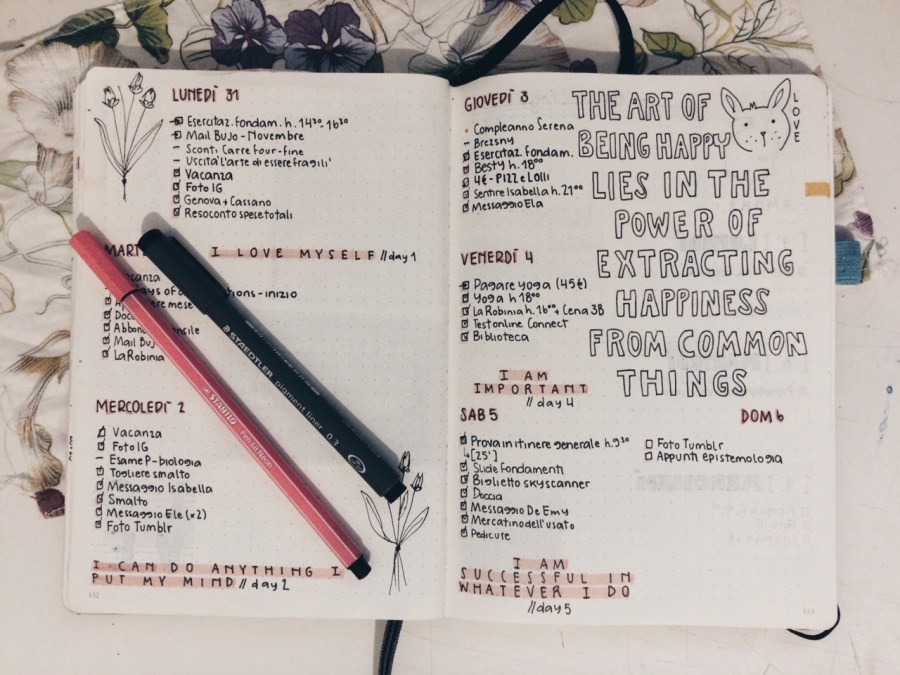 LUNEDÌ 31
Esercitaz. fondam. h. 14³⁰-16³⁰
Mail BuJo - Novembre
Sconti Carrefour-fine
Uscita "l'arte di essere fragili"
Vacanza
Foto IG
Genova + Cassano
Resoconto spese totali
MART
I LOVE MYSELF // day 1
acanza
ays of ons - inizio
ere mese
Doc
Abbon sile
Mail Bu
La Robinia
MERCOLEDÌ 2
Vacanza
Foto IG
Esame P-biologia
Togliere smalto
Messaggio Isabella
Smalto
Messaggio Ele (x2)
Foto Tumblr
I CAN DO ANYTHING I
PUT MY MIND // day 2
STAEDTLER pigment liner 0.3
STABILO Pen 68 Neon
GIOVEDÌ 3
Compleanno Serena
Brezsny
Esercitaz. Fondam.
Besty h. 18⁰⁰
4€ - Pizze Lolli
Sentire Isabella h. 21⁰⁰
Messaggio Ela
THE ART OF
BEING HAPPY
LIES IN THE
POWER OF
EXTRACTING
HAPPINESS
FROM COMMON
THINGS
LOVE
VENERDÌ 4
Pagare yoga (45€)
Yoga h 18⁰⁰
La Robinia h. 16⁰⁰ + Cena 3B
Test online Connect
Biblioteca
I AM
IMPORTANT
// day 4
SAB 5
Prova in itinere generale h. 9³⁰
↳ [25']
Slide Fondamenti
Biglietto skyscanner
Doccia
Messaggio De Emy
Mercatino dell'usato
Pedicure
DOM 6
Foto Tumblr
Appunti epistemologia
I AM
SUCCESSFUL IN
WHATEVER I DO
// day 5